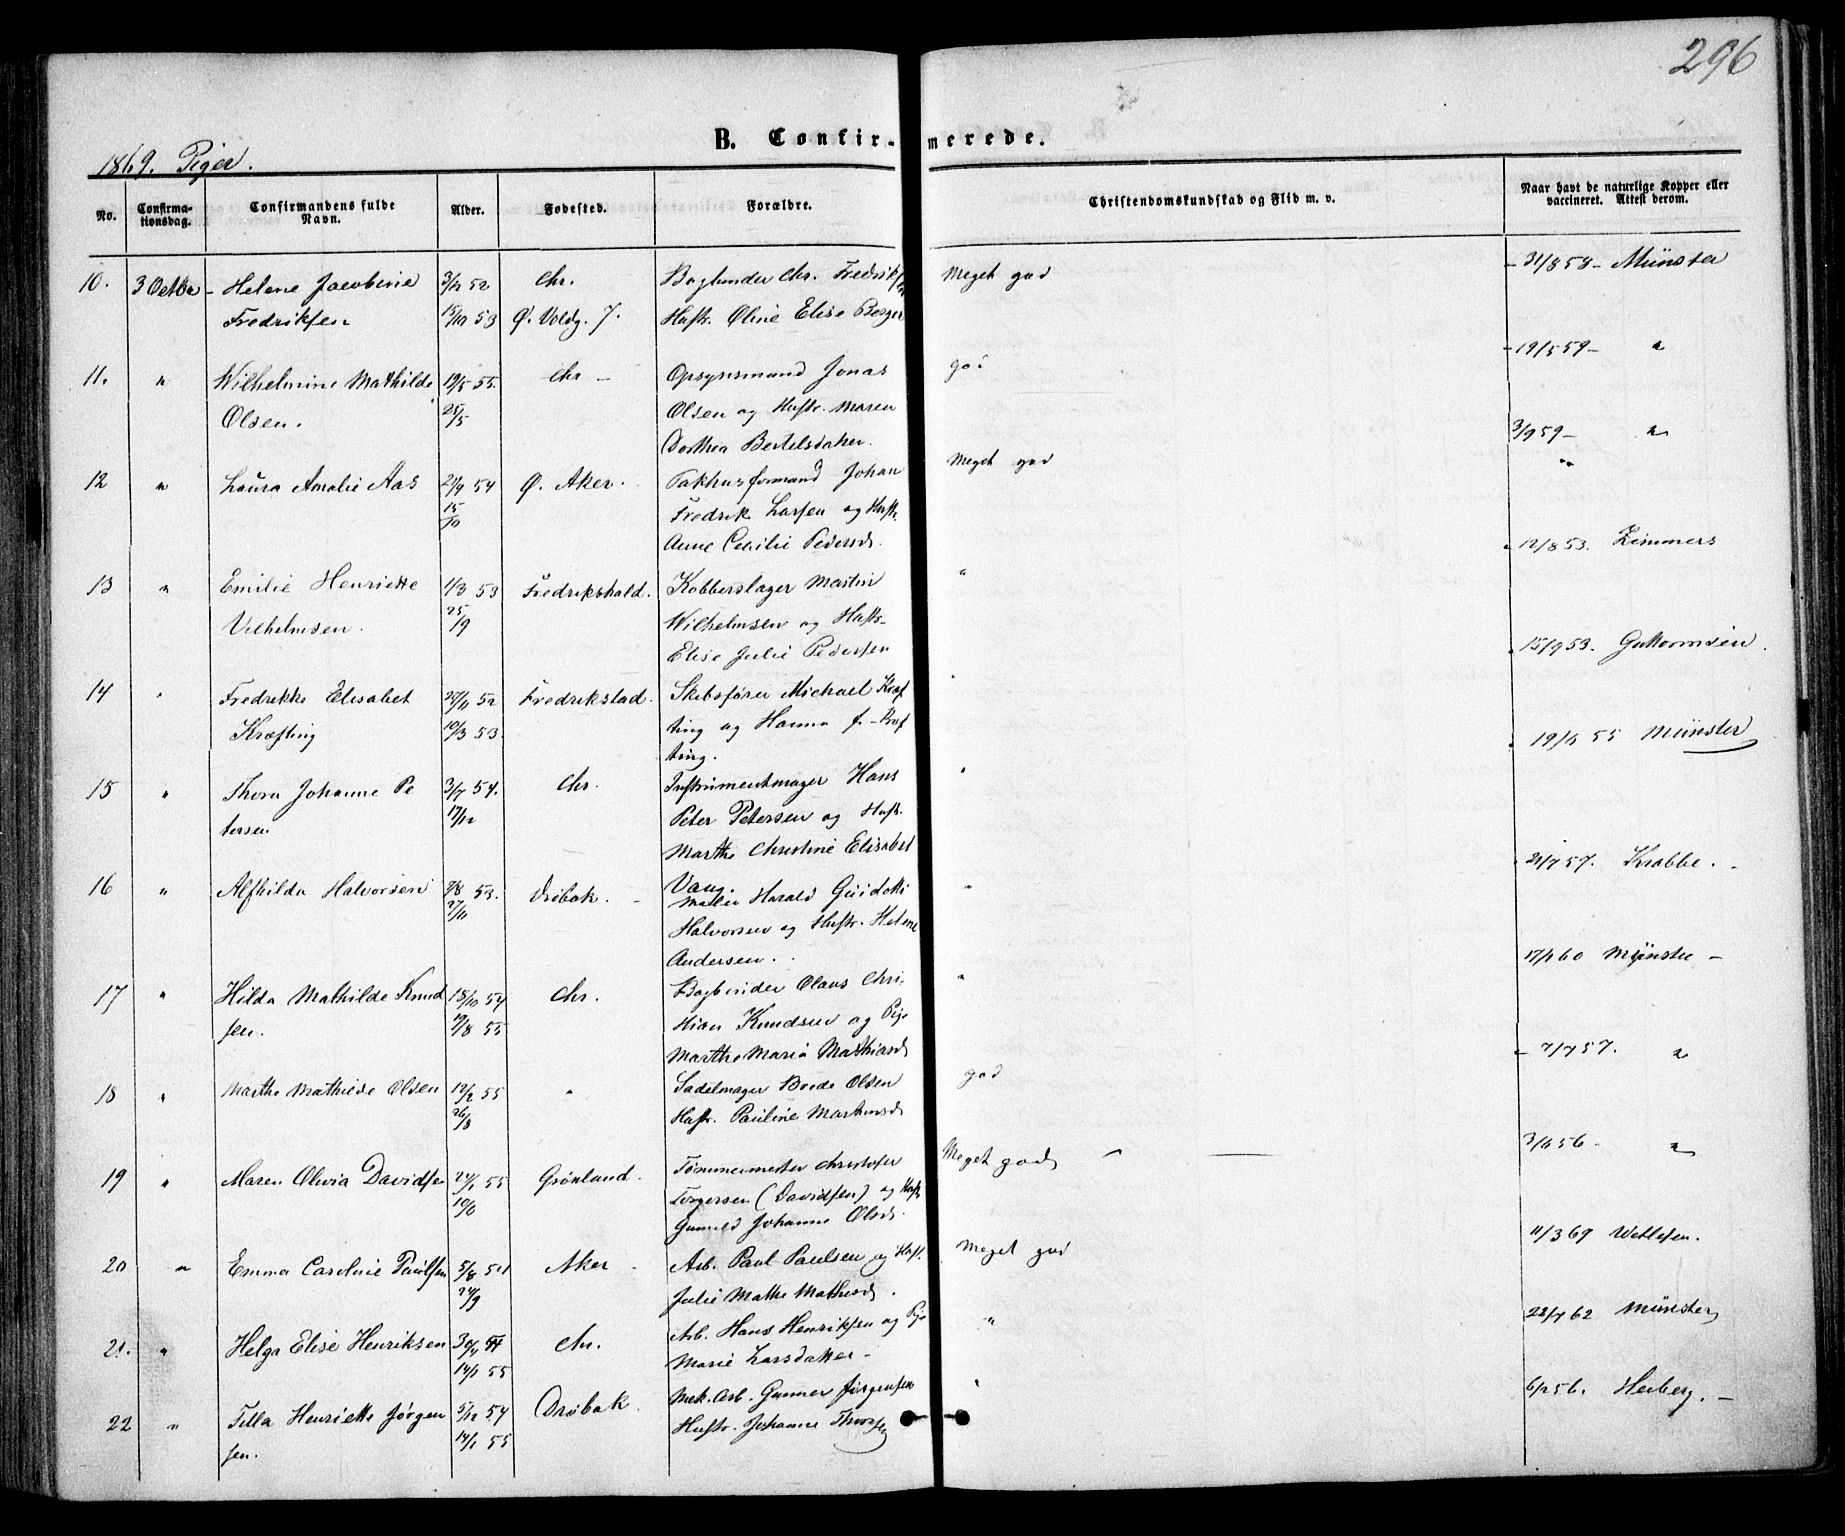 296
B. Confirmerede.
1869. Piger.
No. Confirmationsdag. Confirmandens fulde Navn. Alder. Fødested. Forældre. Christendomskundskab og Flid m. v. Naar havt de naturlige Kopper eller vaccineret. Attest derom.
10. 3 Octbr Helene Jacobine 3/12 52 Chr. Chr. Fredriksen Meget god 31/8 58 Münster
Fredriksen 15/10 53 Ø. Voldg. 7. Hustr. Oline Elise Berger
11. " Wilhelmine Mathilde 19/5 55. Chr Opsynsmand Jonas god 19/5 59 "
Olsen. 25/5 Olsen og Hustr. Maren
Dorthea Bertelsdatter.
12 " Laura Amalie Aas 21/9 54 Ø. Aker. Pakhusformand Johan Meget god 3/9 59 "
15/10 Fredrik Larsen og Hustr.
Anne Cecilie Pedersd.
13 " Emilie Henriette 1/3 53 Fredrikshald. Kobberslager Martin " 12/8 53. Zimmers
Vilhelmsen. 25/9 Wilhelmsen og Hustr.
Elise Julie Pedersen
14 " Fredrikke Elisabet 52 Fredrikstad Skibsfører Michael Kræf " 15/9 53. Guttormsen.
Kræfting 10/3 53. ting og Hanna f. Kræf
ting.
15 " Thora Johanne Pe 3/7 54. Chr. Instrumentmager Hans " 19/6 55 Münster
tersen 17/12 Peter Petersen og Hustr.
Marthe Christine Elisabet
Vang.
16 " Alfhilda Halvorsen 53. Drøbak. Maler Harald Guidotti " 21/7 57. Krabbe.
27/11 Halvorsen og Hustr. Helene
Andersen.
17 " Hilda Mathilde Knud 18/10 54 Chr. Bogbinder Olaus Chri- " 17/7 60 Münster
sen. 19/8 55 stian Knudsen og Pige
Marthe Maria Mathiasd.
18 " Marthe Mathilde Olsen 12/2 55 " Sadelmager Brede Olsen god 7/7 57. "
26/8 Hustr. Pauline Martinsd.
19 " Maren Olivia Davidsen 24/1 55 Grønland. Tømmermester Christofer Meget god 3/6 56 "
Torgersen (Davidsen) og Hustr.
Gunild Johanne Olsd.
20 " Emma Caroline Paulsen 5/8 54 Aker Arb. Paul Paulsen og Hust. Meget god 11/3 69 Wetlesen.
24/9 Julie Mathe Mathisd.
21. " Helga Elise Henriksen Chr. Arb. Hans Henriksen og Pige " 22/7 62 Münster
14/1 55 Marie Larsdatter
22 " Tilla Henriette Jørgen 5/12 54 Drøbak Mek. Arb. Gunner Jørgensen " 6/2 56. Heiberg.
sen. 14/1 55 Hustr. Johanne